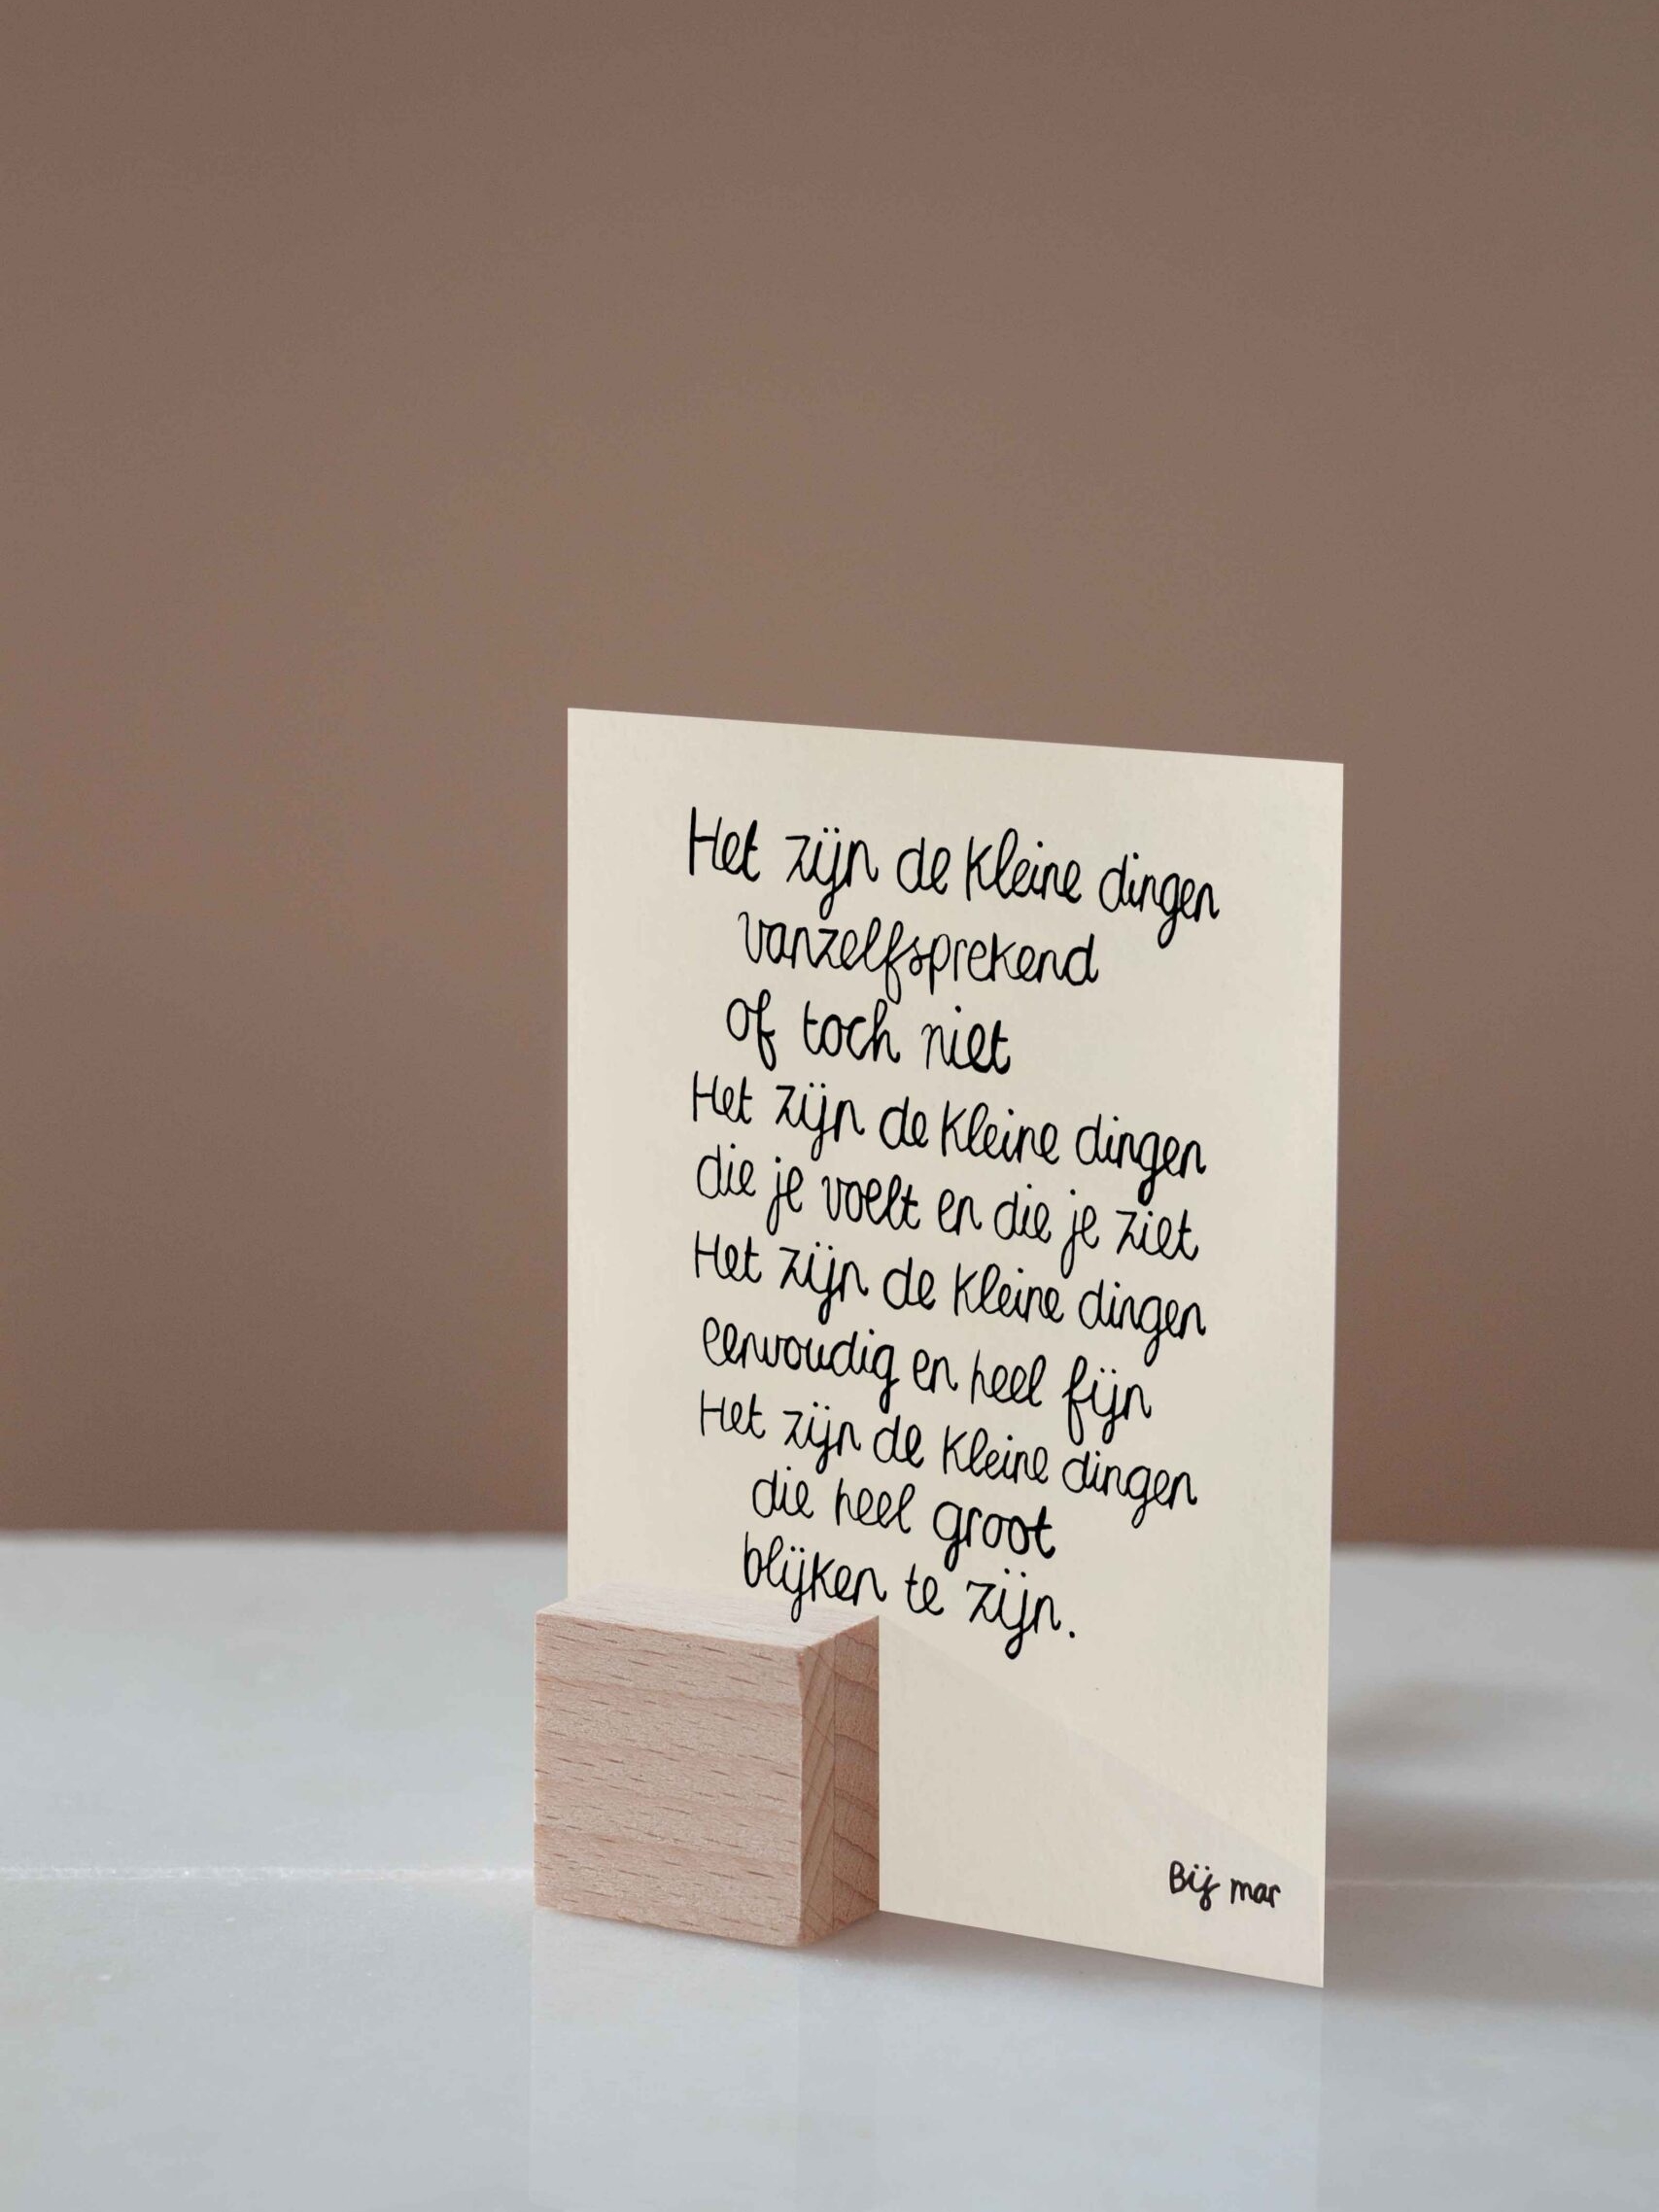 Het zijn de kleine dingen
vanzelfsprekend
of toch niet
Het zijn de kleine dingen
die je voelt en die je ziet
Het zijn de kleine dingen
eenvoudig en heel fijn
Het zijn de kleine dingen
die heel groot
blijken te zijn.
Bij mar